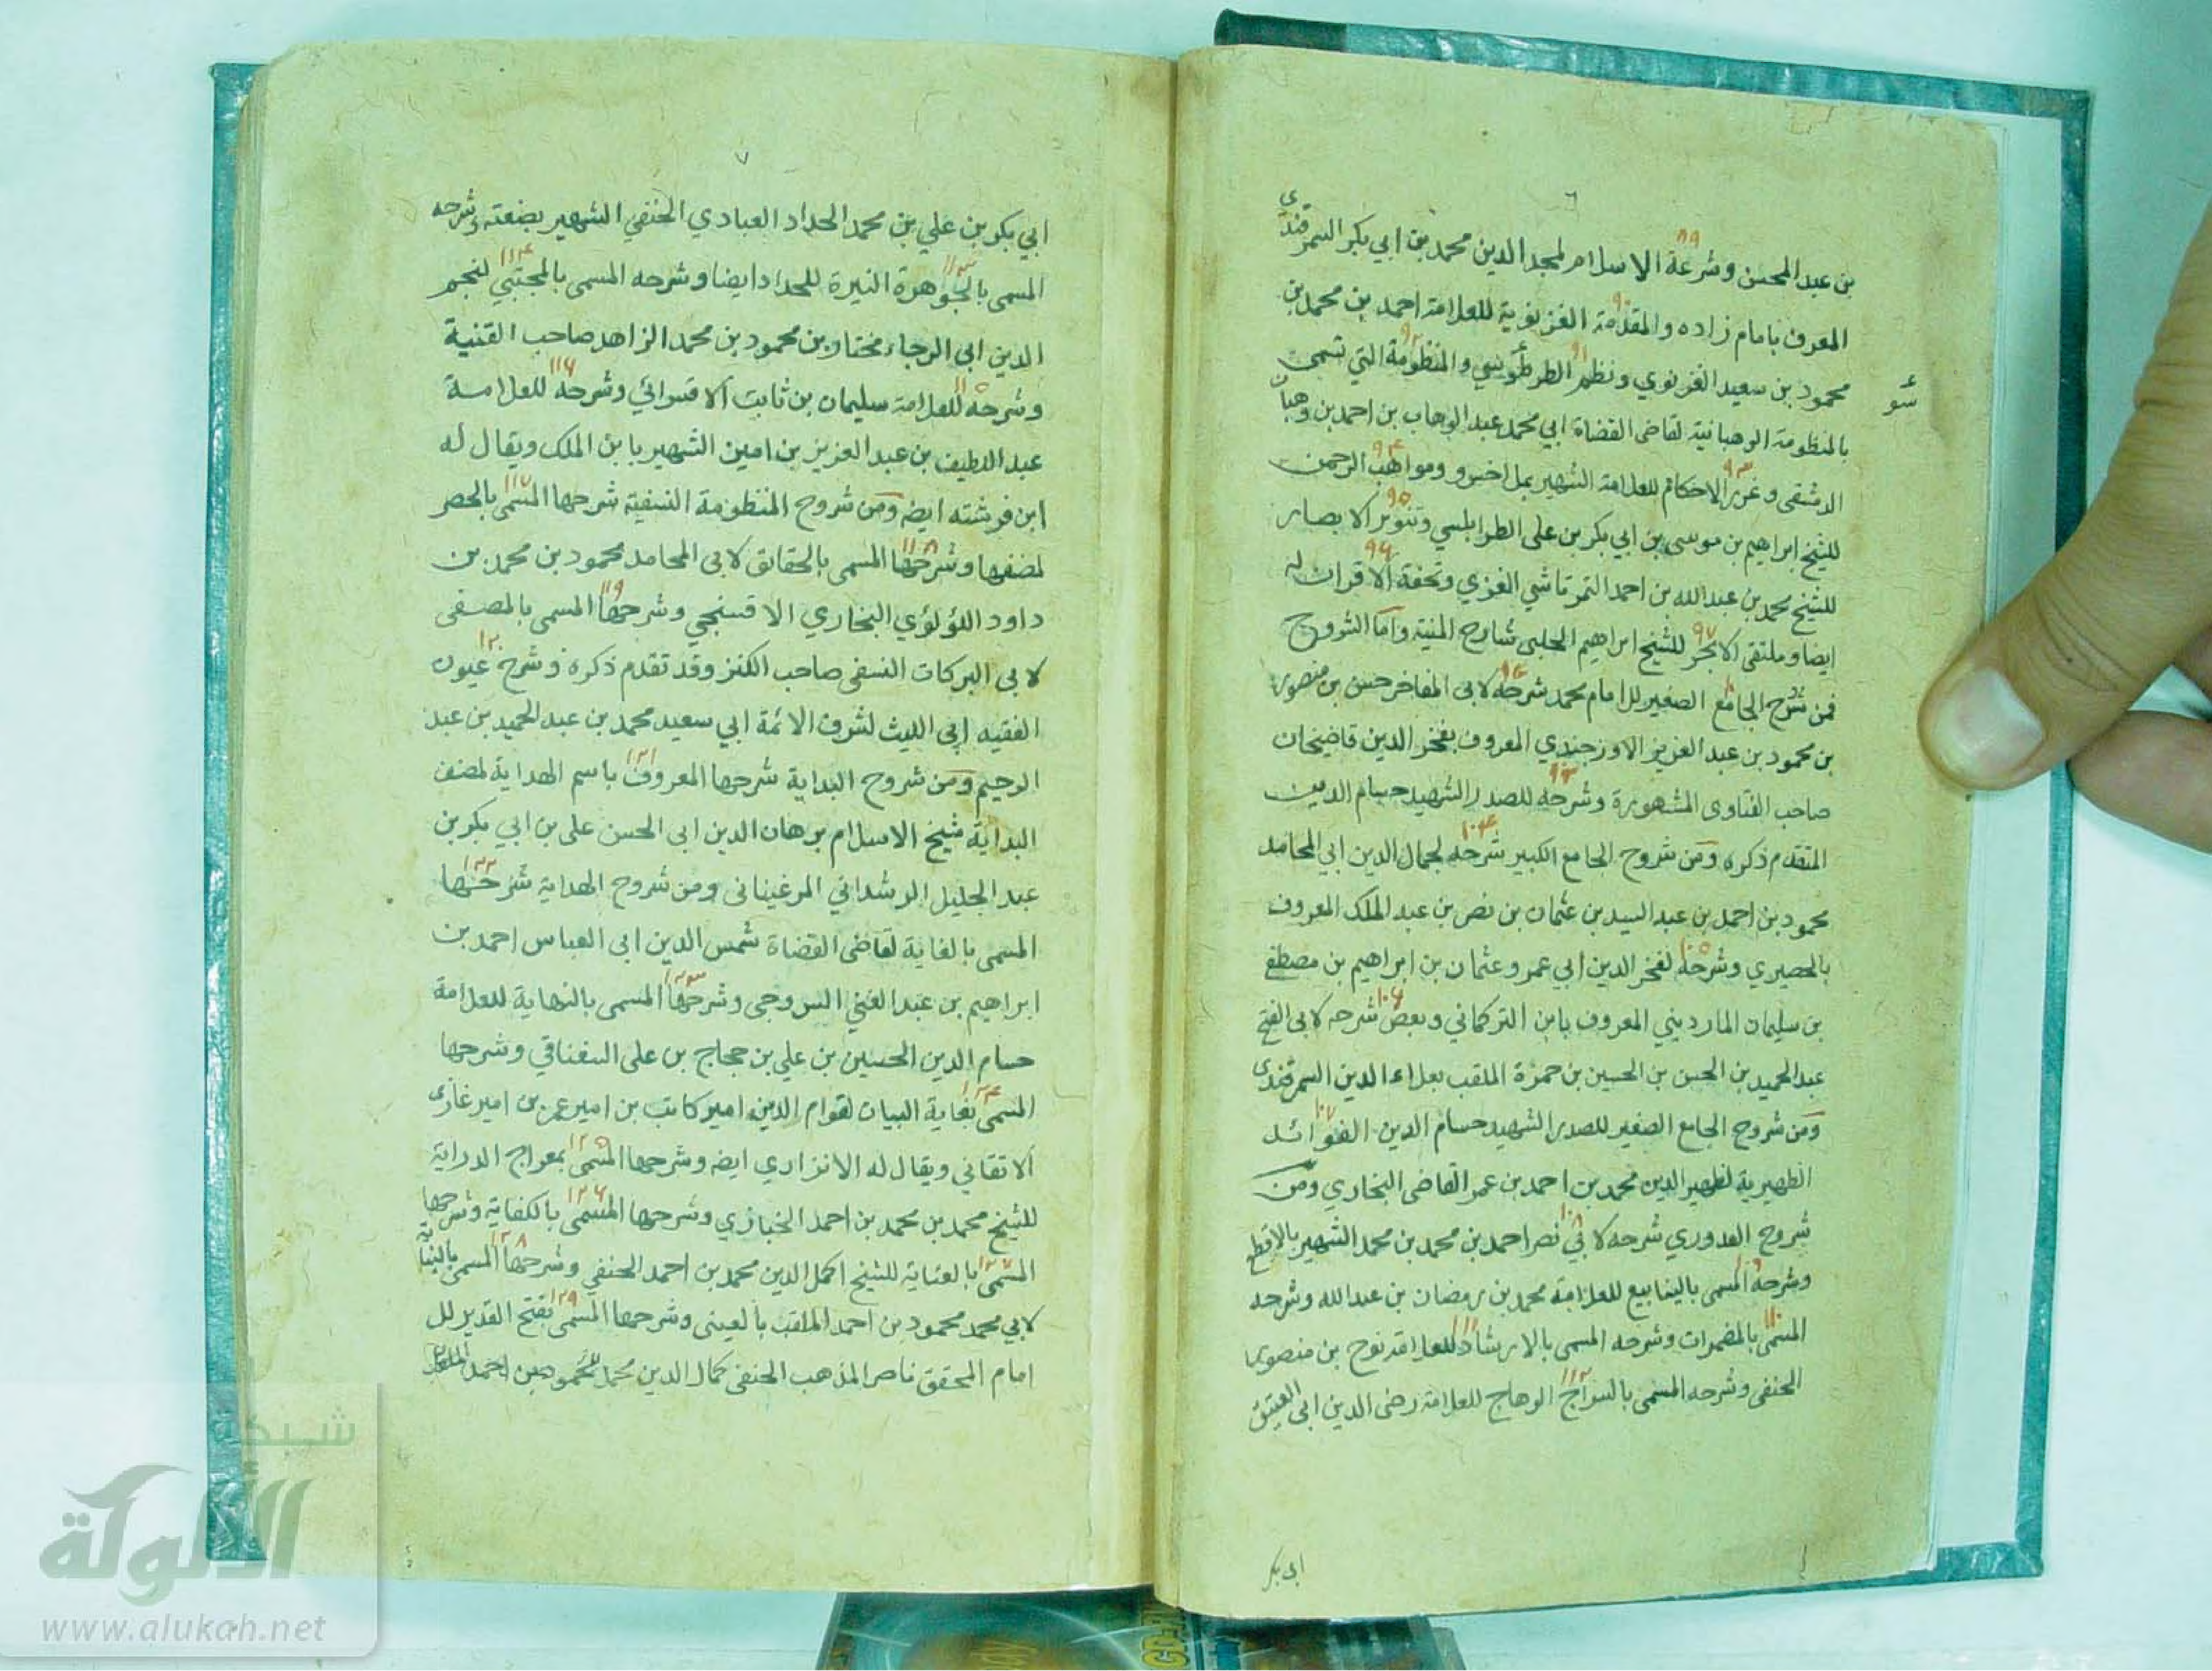 ٦
بن عبد المحسن وشرعة الاسلام لمجد الدين محمد بن ابي بكر السمرقندي
٨٩
المعرف بامام زاده والمقدمة الغزنوية للعلامة احمد بن محمد بن
٩٠
محمود بن سعيد الغزنوي ونظم الطرطوسي والمنظومة التي تسمى
٩١ ٩٢
بالمنظومة الوهبانية لقاضى القضاة ابي محمد عبد الوهاب بن احمد بن وهبان
الدمشقى وغرر الاحكام للعلامة الشهير بملا خسرو ومواهب الرحمن
٩٣ ٩٤
للشيخ ابراهيم بن موسى بن ابي بكر بن على الطرابلسي وتنوير الابصار
٩٥
للشيخ محمد بن عبد الله بن احمد التمرتاشي الغزي وتحفة الاقران له
٩٦
ايضا وملتقى الابحر للشيخ ابراهيم الحلبى شارح المنية واما الشروح
٩٧
فمن شرح الجامع الصغير للامام محمد شرحه لابى المفاخر حسن بن منصور
بن محمود بن عبد العزيز الاوزجندي المعروف بفخر الدين قاضيخان
صاحب الفتاوى المشهورة وشرحه للصدر الشهيد حسام الدين
المتقدم ذكره ومن شروح الجامع الكبير شرحه لجمال الدين ابي المحامد
١٠٤
محمود بن احمد بن عبد السيد بن عثمان بن نصر بن عبد الملك المعروف
بالحصيري وشرحه لفخر الدين ابي عمرو عثمان بن ابراهيم بن مصطفى
١٠٥
بن سليمان المارديني المعروف بابن التركماني وبعض شرحه لابى الفتح
١٠٦
عبد الحميد بن الحسن بن الحسين بن حمزة الملقب بعلاء الدين السمرقندى
ومن شروح الجامع الصغير للصدر الشهيد حسام الدين الفوائد
١٠٧
الظهيرية لظهير الدين محمد بن احمد بن عمر القاضى البخاري ومن
شروح القدوري شرحه لابي نصر احمد بن محمد بن محمد الشهير بالاقطع
١٠٨
وشرحه المسمى بالينابيع للعلامة محمد بن رمضان بن عبد الله وشرحه
المسمى بالمضمرات وشرحه المسمى بالارشاد للعلامة نوح بن منصور
١١٠ ١١١
الحنفى وشرحه المسمى بالسراج الوهاج للعلامة رضى الدين ابى العتيق
١١٢
ابى بكر
٧
ابي بكر بن علي بن محمد الحداد العبادي الحنفي الشهير بضعته وشرحه
المسمى بالجوهرة النيرة للحداد ايضا وشرحه المسمى بالمجتبي لنجم
١١٣ ١١٤
الدين ابى الرجاء مختار بن محمود بن محمد الزاهد صاحب القنية
وشرحه للعلامة سليمان بن ثابت الاقسرائي وشرحه للعلامة
١١٥ ١١٦
عبد اللطيف بن عبد العزيز بن امين الشهير بابن الملك ويقال له
ابن فرشته ايضه ومن شروح المنظومة النسفية شرحها المسمى بالحصر
١١٧
لمصنفها وشرحها المسمى بالحقائق لابى المحامد محمود بن محمد بن
١١٨
داود اللؤلؤي البخاري الافسنجي وشرحها المسمى بالمصفى
١١٩
لابى البركات النسفى صاحب الكنز وقد تقدم ذكره وشرح عيون
١٢٠
الفقيه ابى الليث لشرف الائمة ابي سعيد محمد بن عبد الحميد بن عبد
الرحيم ومن شروح البداية شرحها المعروف باسم الهداية لمصنف
١٢١
البداية شيخ الاسلام برهان الدين ابى الحسن على بن ابي بكر بن
عبد الجليل الرشداني المرغينانى ومن شروح الهداية شرحها
١٢٢
المسمى بالغاية لقاضى القضاة شمس الدين ابى العباس احمد بن
ابراهيم بن عبد الغني السروجى وشرحها المسمى بالنهاية للعلامة
١٢٣
حسام الدين الحسين بن علي بن حجاج بن على السغناقي وشرحها
المسمى بغاية البيان لقوام الدين امير كاتب بن امير عمر بن امير غازى
١٢٤
الاتقاني ويقال له الانزاري ايضه وشرحها المسمى بمعراج الدراية
١٢٥
للشيخ محمد بن محمد بن احمد الخبازي وشرحها المسمى بالكفاية وشرحها
١٢٦
المسمى بالعناية للشيخ اكمل الدين محمد بن احمد الحنفي وشرحها المسمى بالبناية
١٢٧ ١٢٨
لابي محمد محمود بن احمد الملقب بالعينى وشرحها المسمى بفتح القدير لل
١٢٩
امام المحقق ناصر المذهب الحنفى كمال الدين محمد
شبكة
الألوكة
www.alukah.net